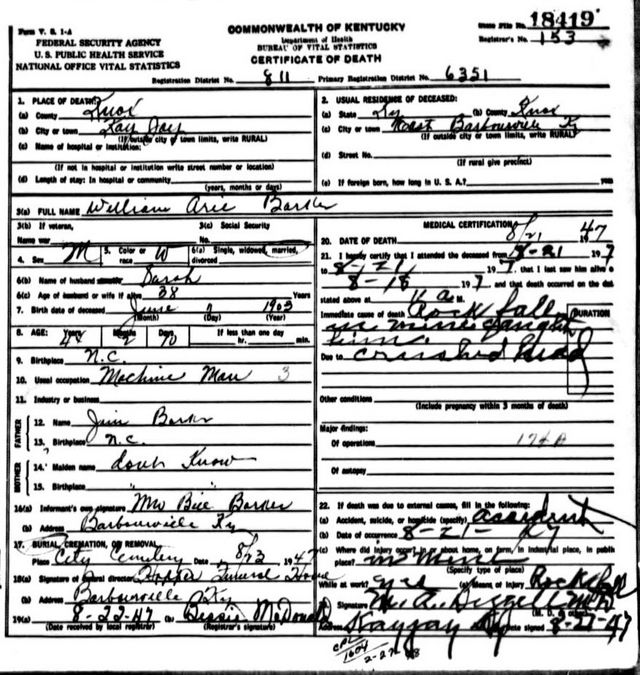 Form V. S. 1-A
FEDERAL SECURITY AGENCY
U. S. PUBLIC HEALTH SERVICE
NATIONAL OFFICE VITAL STATISTICS
COMMONWEALTH OF KENTUCKY
Department of Health
BUREAU OF VITAL STATISTICS
CERTIFICATE OF DEATH
State File No. 18419
Registrar's No. 153
Registration District No. 811 Primary Registration District No. 6351
1. PLACE OF DEATH:
(a) County Knox
(b) City or town Kay Jay
(If outside city or town limits, write RURAL)
(c) Name of hospital or institution:
(If not in hospital or institution write street number or location)
(d) Length of stay: In hospital or community
(years, months or days)
2. USUAL RESIDENCE OF DECEASED:
(a) State Ky (b) County Knox
(c) City or town West Barbourville K
(If outside city or town limits, write RURAL)
(d) Street No.
(If rural give precinct)
(e) If foreign born, how long in U. S. A.?
3(a) FULL NAME William Arie Barker
3(b) If veteran,
Name war
3(c) Social Security
No.
4. Sex M
5. Color or race W
6(a) Single, widowed, married, divorced
6(b) Name of husband Sarah
6(c) Age of husband or wife if alive 38 Years
7. Birth date of deceased June 1903
(Month) (Day) (Year)
8. AGE: Years Days
If less than one day
hr. min.
9. Birthplace N.C.
10. Usual occupation Machine Man 3
11. Industry or business
FATHER
12. Name Jim Barker
13. Birthplace N.C.
MOTHER
14. Maiden name dont Know
15. Birthplace " "
16(a) Informant's own signature Mr Bill Barker
(b) Address Barbourville Ky
17. BURIAL, CREMATION, OR REMOVAL
Place City Cemetery Date 8/23 1947
18(a) Signature of funeral director Hopper Funeral Home
(b) Address Barbourville Ky
19(a) 8-22-47 (b) Bessie McDonald
(Date received by local registrar) (Registrar's signature)
MEDICAL CERTIFICATION
20. DATE OF DEATH 8/21 1947
21. I hereby certify that I attended the deceased from 8-21 197
to 8-21 197, that I last saw him alive o
8-18 197, and that death occurred on the dat
stated above at M.
Immediate cause of death Rock fall
in mine
Due to crushed head
DURATION
Other conditions
(Include pregnancy within 3 months of death)
Major findings:
Of operations 174A
Of autopsy
22. If death was due to external causes, fill in the following:
(a) Accident, suicide, or homicide (specify) accident
(b) Date of occurrence 8-21
(c) Where did injury occur: in or about home, on farm, in industrial place, in public
place? in Mine
(Specify type of place)
While at work? yes (e) Means of injury Rock fall
Signature
Address Kayjay Ky Date signed 8-27-47